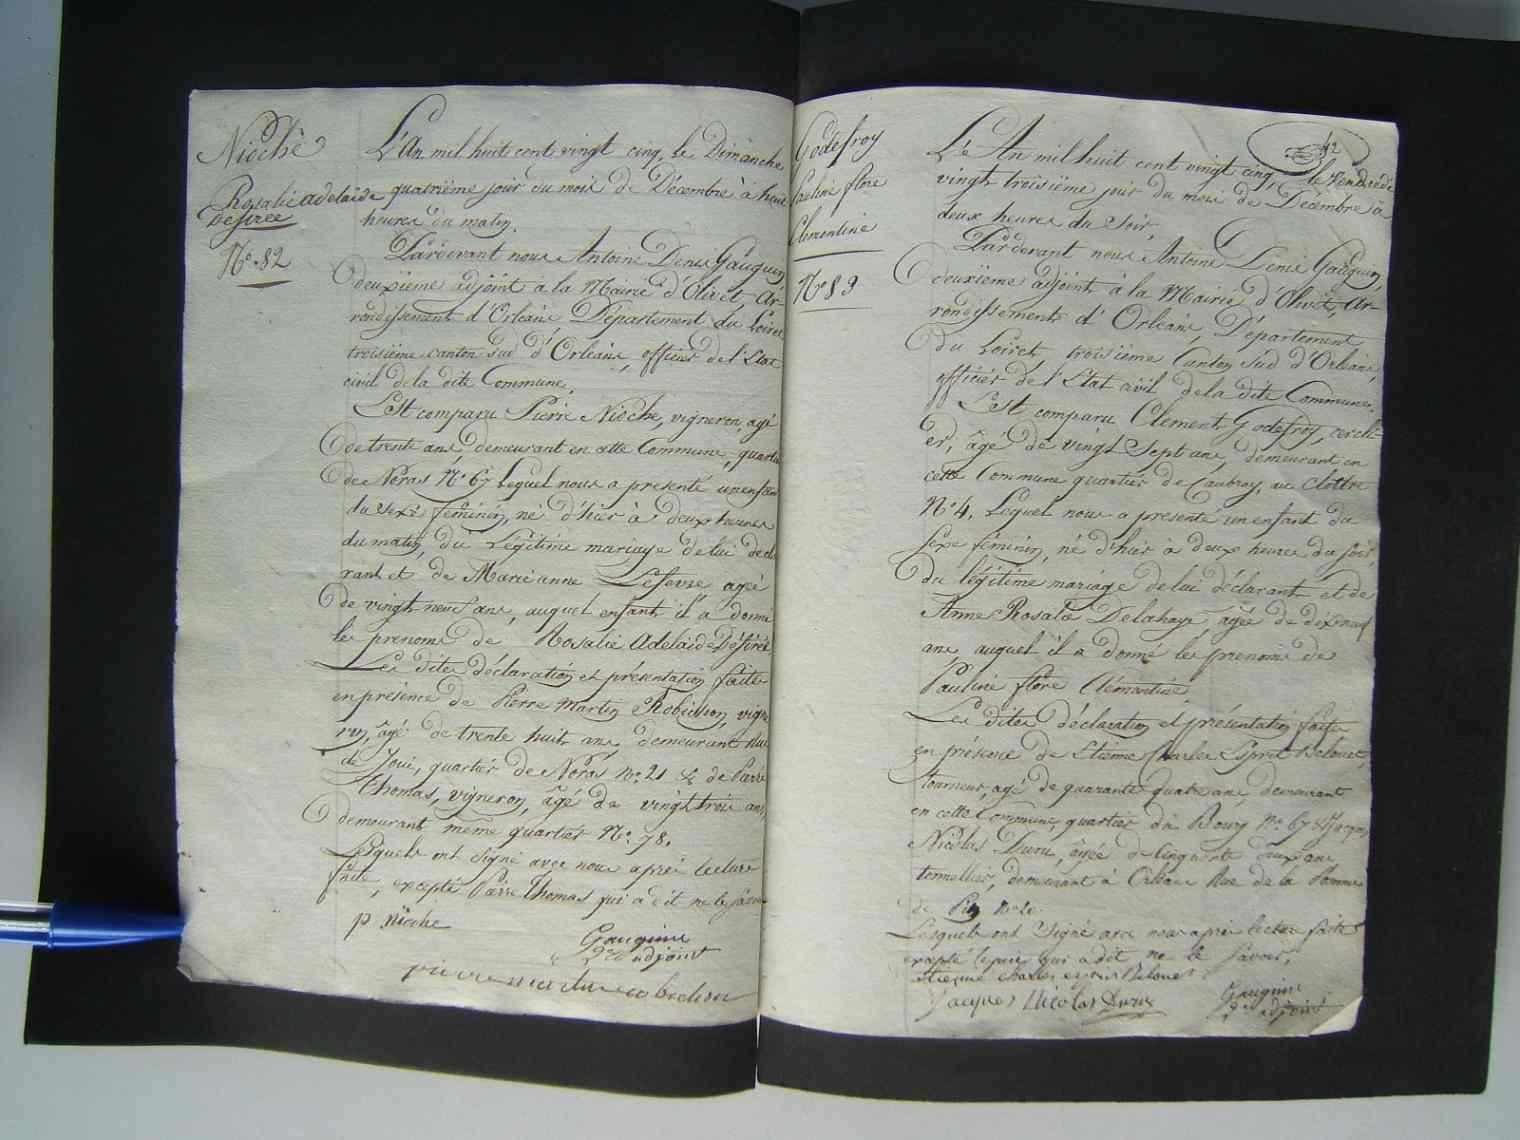 Nioche
Rosalie adelaide
Desirée
N° 82
L'An mil huit cent vingt cinq, le Dimanche
quatrième jour du mois de Décembre à huit
heures du matin.
Pardevant nous Antoine Denis Gauguin
deuxième adjoint a la Mairie d'Olivet, Ar-
rondissement d'Orléans Département du Loiret
troisième canton sud d'Orléans, officier de l'Etat
civil de la dite Commune.
Est comparu Pierre Nioche, vigneron, agé
de trente ans, demeurant en cette Commune, quartier
de Noras N° 67 Lequel nous a presenté un enfant
du sexe féminin, né d'hier à deux heures
du matin, du Légitime mariage de lui décla
rant et de Marie anne Lefevre agée
de vingt neuf ans, auquel enfant il a donné
les prenoms de Rosalie Adelaide Désirée
Les dites déclaration et présentation faites
en présence de Pierre Martin Robichon, vigne
ron, âgé de trente huit ans, demeurant Rue
de Joui, quartier de Noras N° 21 & de Pierre
Thomas, vigneron, âgé de vingt trois ans,
demeurant même quartier N° 78.
Lesquels ont signé avec nous après lecture
faite, excepté Pierre Thomas qui a dit ne le savoir
p nioche
Gauguin
2e adjoint
pierre martin robichon
Godefroy
Pauline flore
Clementine
N° 83
L'An mil huit cent vingt cinq, le Vendredi
vingt troisième jour du mois de Décembre à
deux heures du soir,
Pardevant nous Antoine Denis Gauguin,
deuxième adjoint à la Mairie d'Olivet, Ar-
rondissement d'Orléans, Département
du Loiret, troisième Canton Sud d'Orléans,
officier de l'Etat civil de la dite Commune.
Est comparu Clement Godefroy, cercli-
er, âgé de vingt Sept ans, demeurant en
cette Commune quartier de Caubray, au cloître
N° 4. Lequel nous a presenté un enfant du
sexe féminin, né d'hier à deux heures du soir,
du légitime mariage de lui déclarant et de
Anne Rosalie Delahaye agée de dix neuf
ans, auquel il a donné les prenoms de
Pauline flore Clémentine
Les dites déclaration et présentation faites
en présence de Etienne Charles Esprit Belouet,
tourneur, agé de quarante quatre ans, demeurant
en cette Commune, quartier du Bourg N° 67 & Jacques
Nicolas Duru, âgée de cinquante deux ans
tonnellier, demeurant à Orléans Rue de la Pomme
de Pin N° 20.
Lesquels ont signé avec nous après lecture faite
excepté le pere qui a dit ne le savoir,
etienne charles esprit Belouet
Jacques Nicolas Duru
Gauguin
2e adjoint